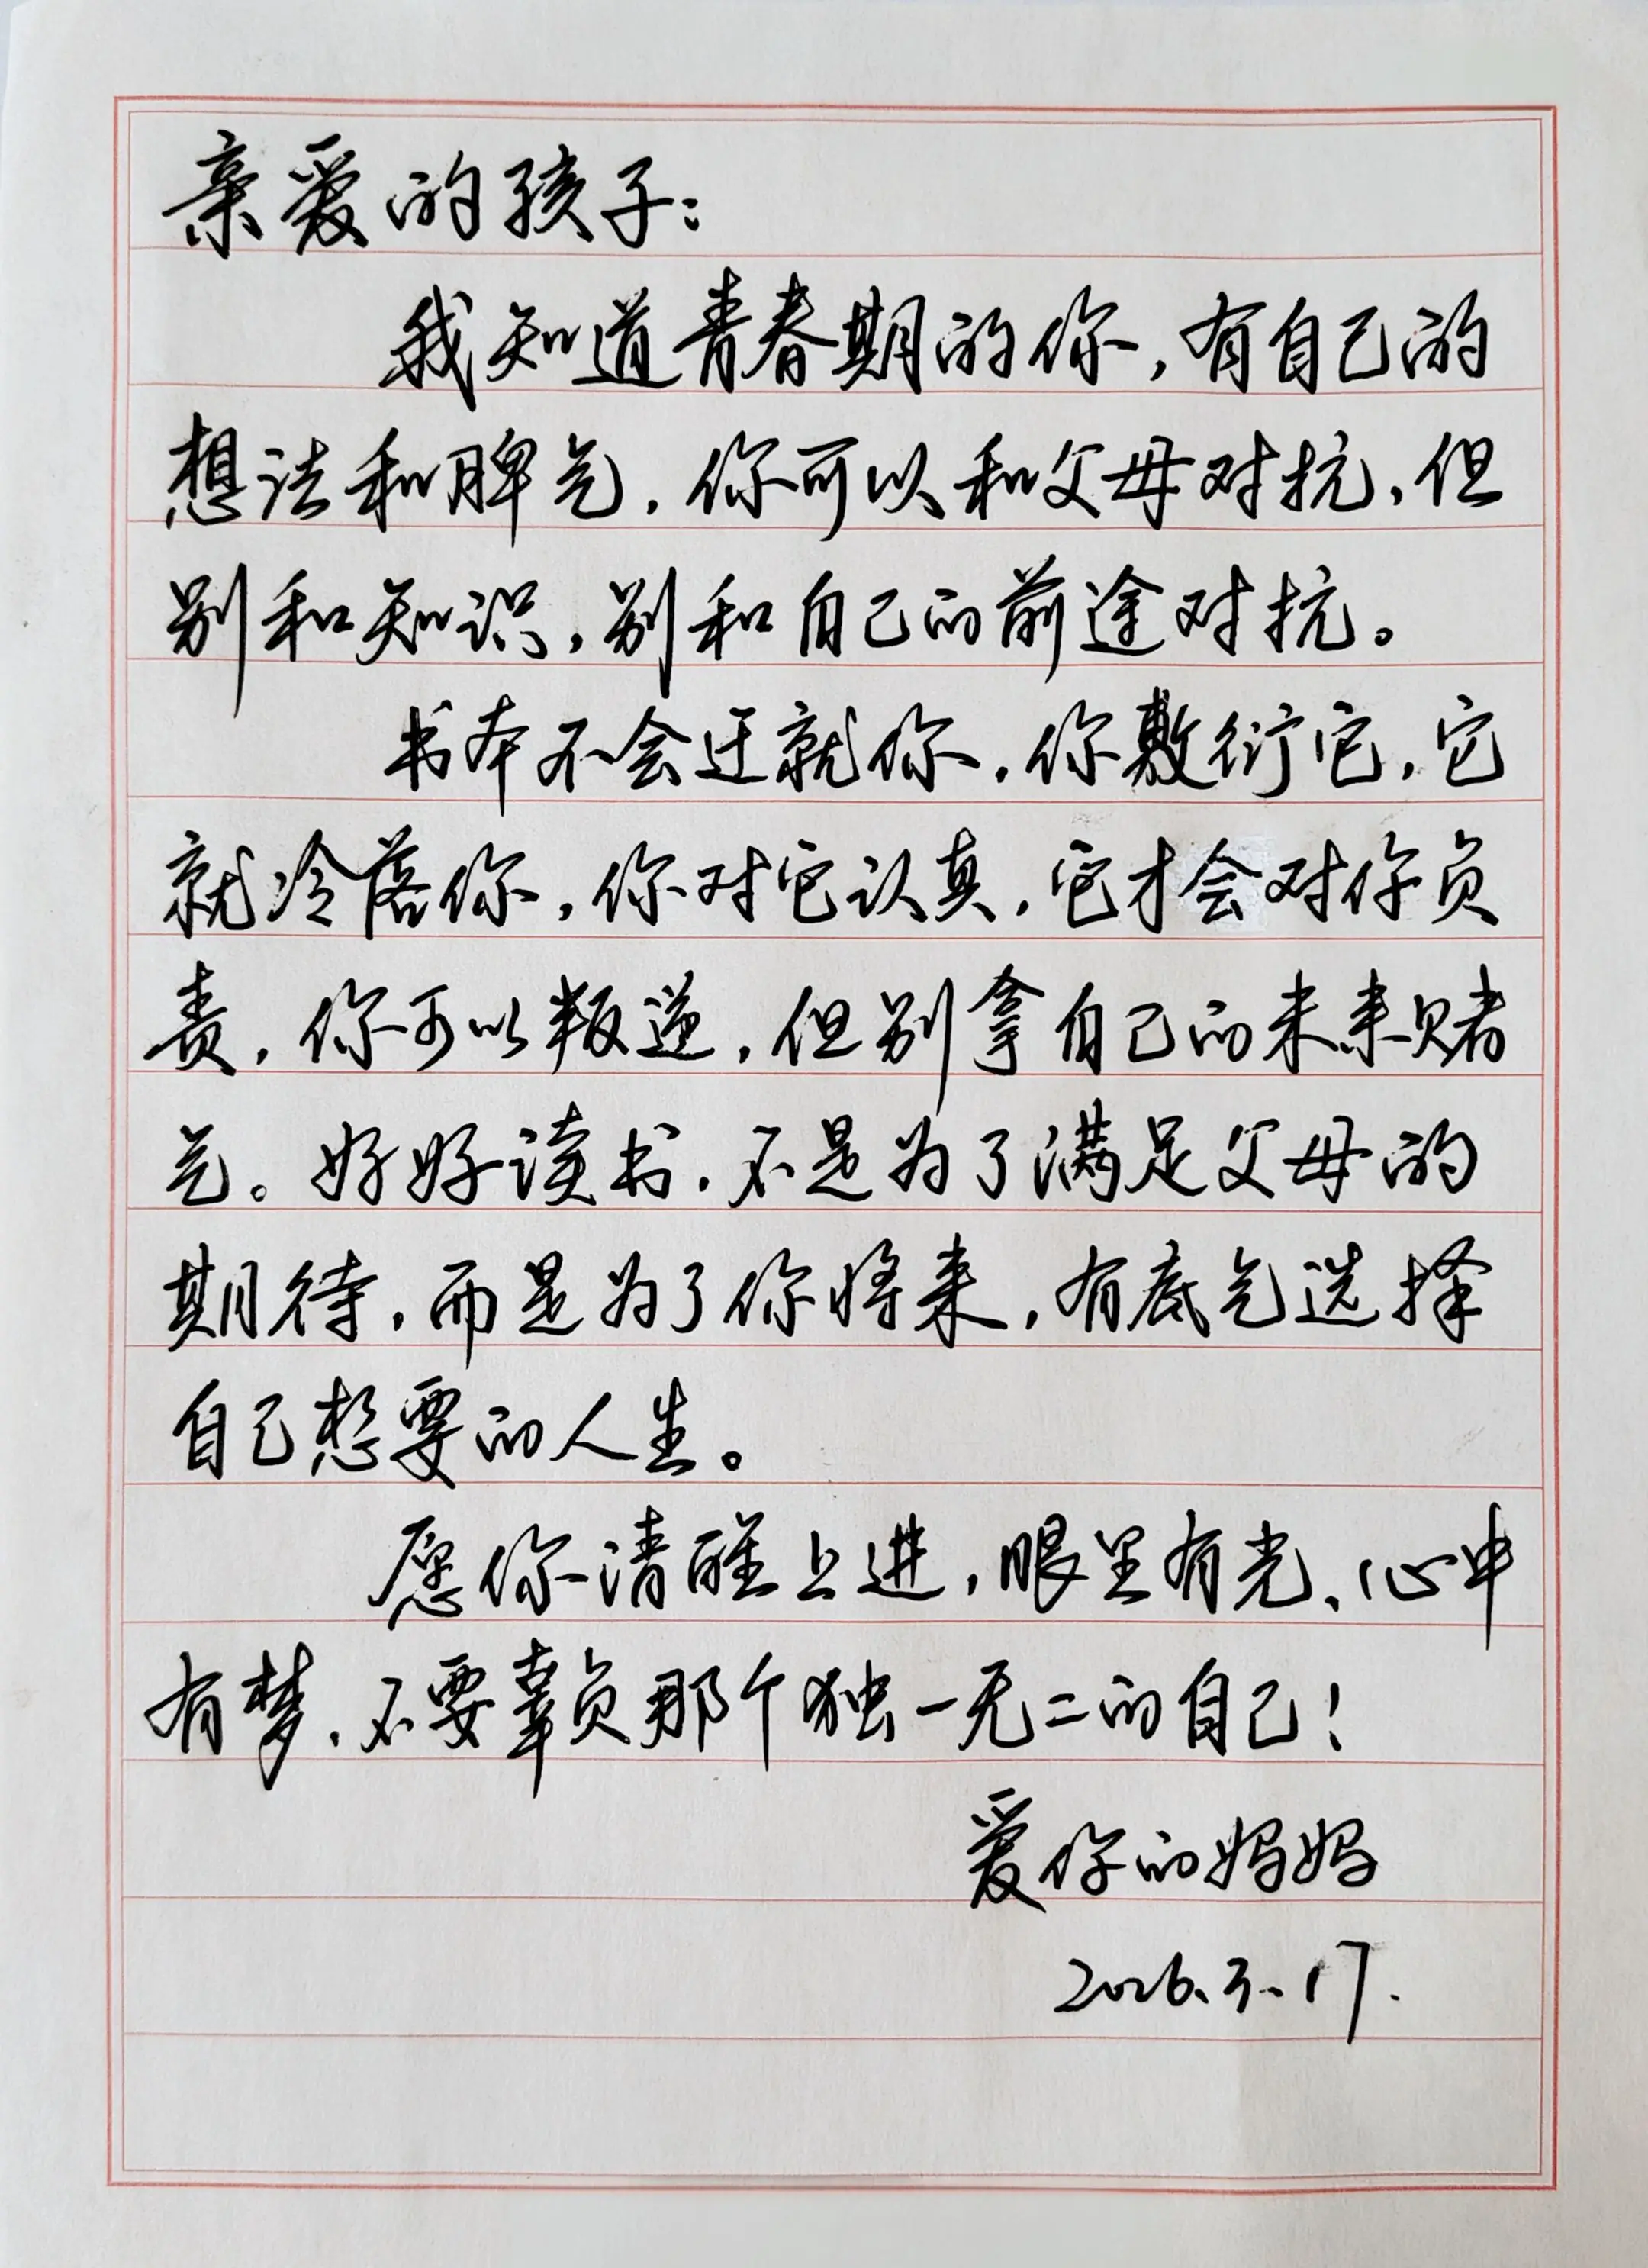 亲爱的孩子:
我知道青春期的你,有自己的
想法和脾气,你可以和父母对抗,但
别和知识,别和自己的前途对抗。
书本不会迁就你,你敷衍它,它
就冷落你,你对它认真,它才会对你负
责,你可以叛逆,但别拿自己的未来赌
气。好好读书,不是为了满足父母的
期待,而是为了你将来,有底气选择
自己想要的人生。
愿你清醒上进,眼里有光、心中
有梦、不要辜负那个独一无二的自己!
爱你的妈妈
2026.3.17.